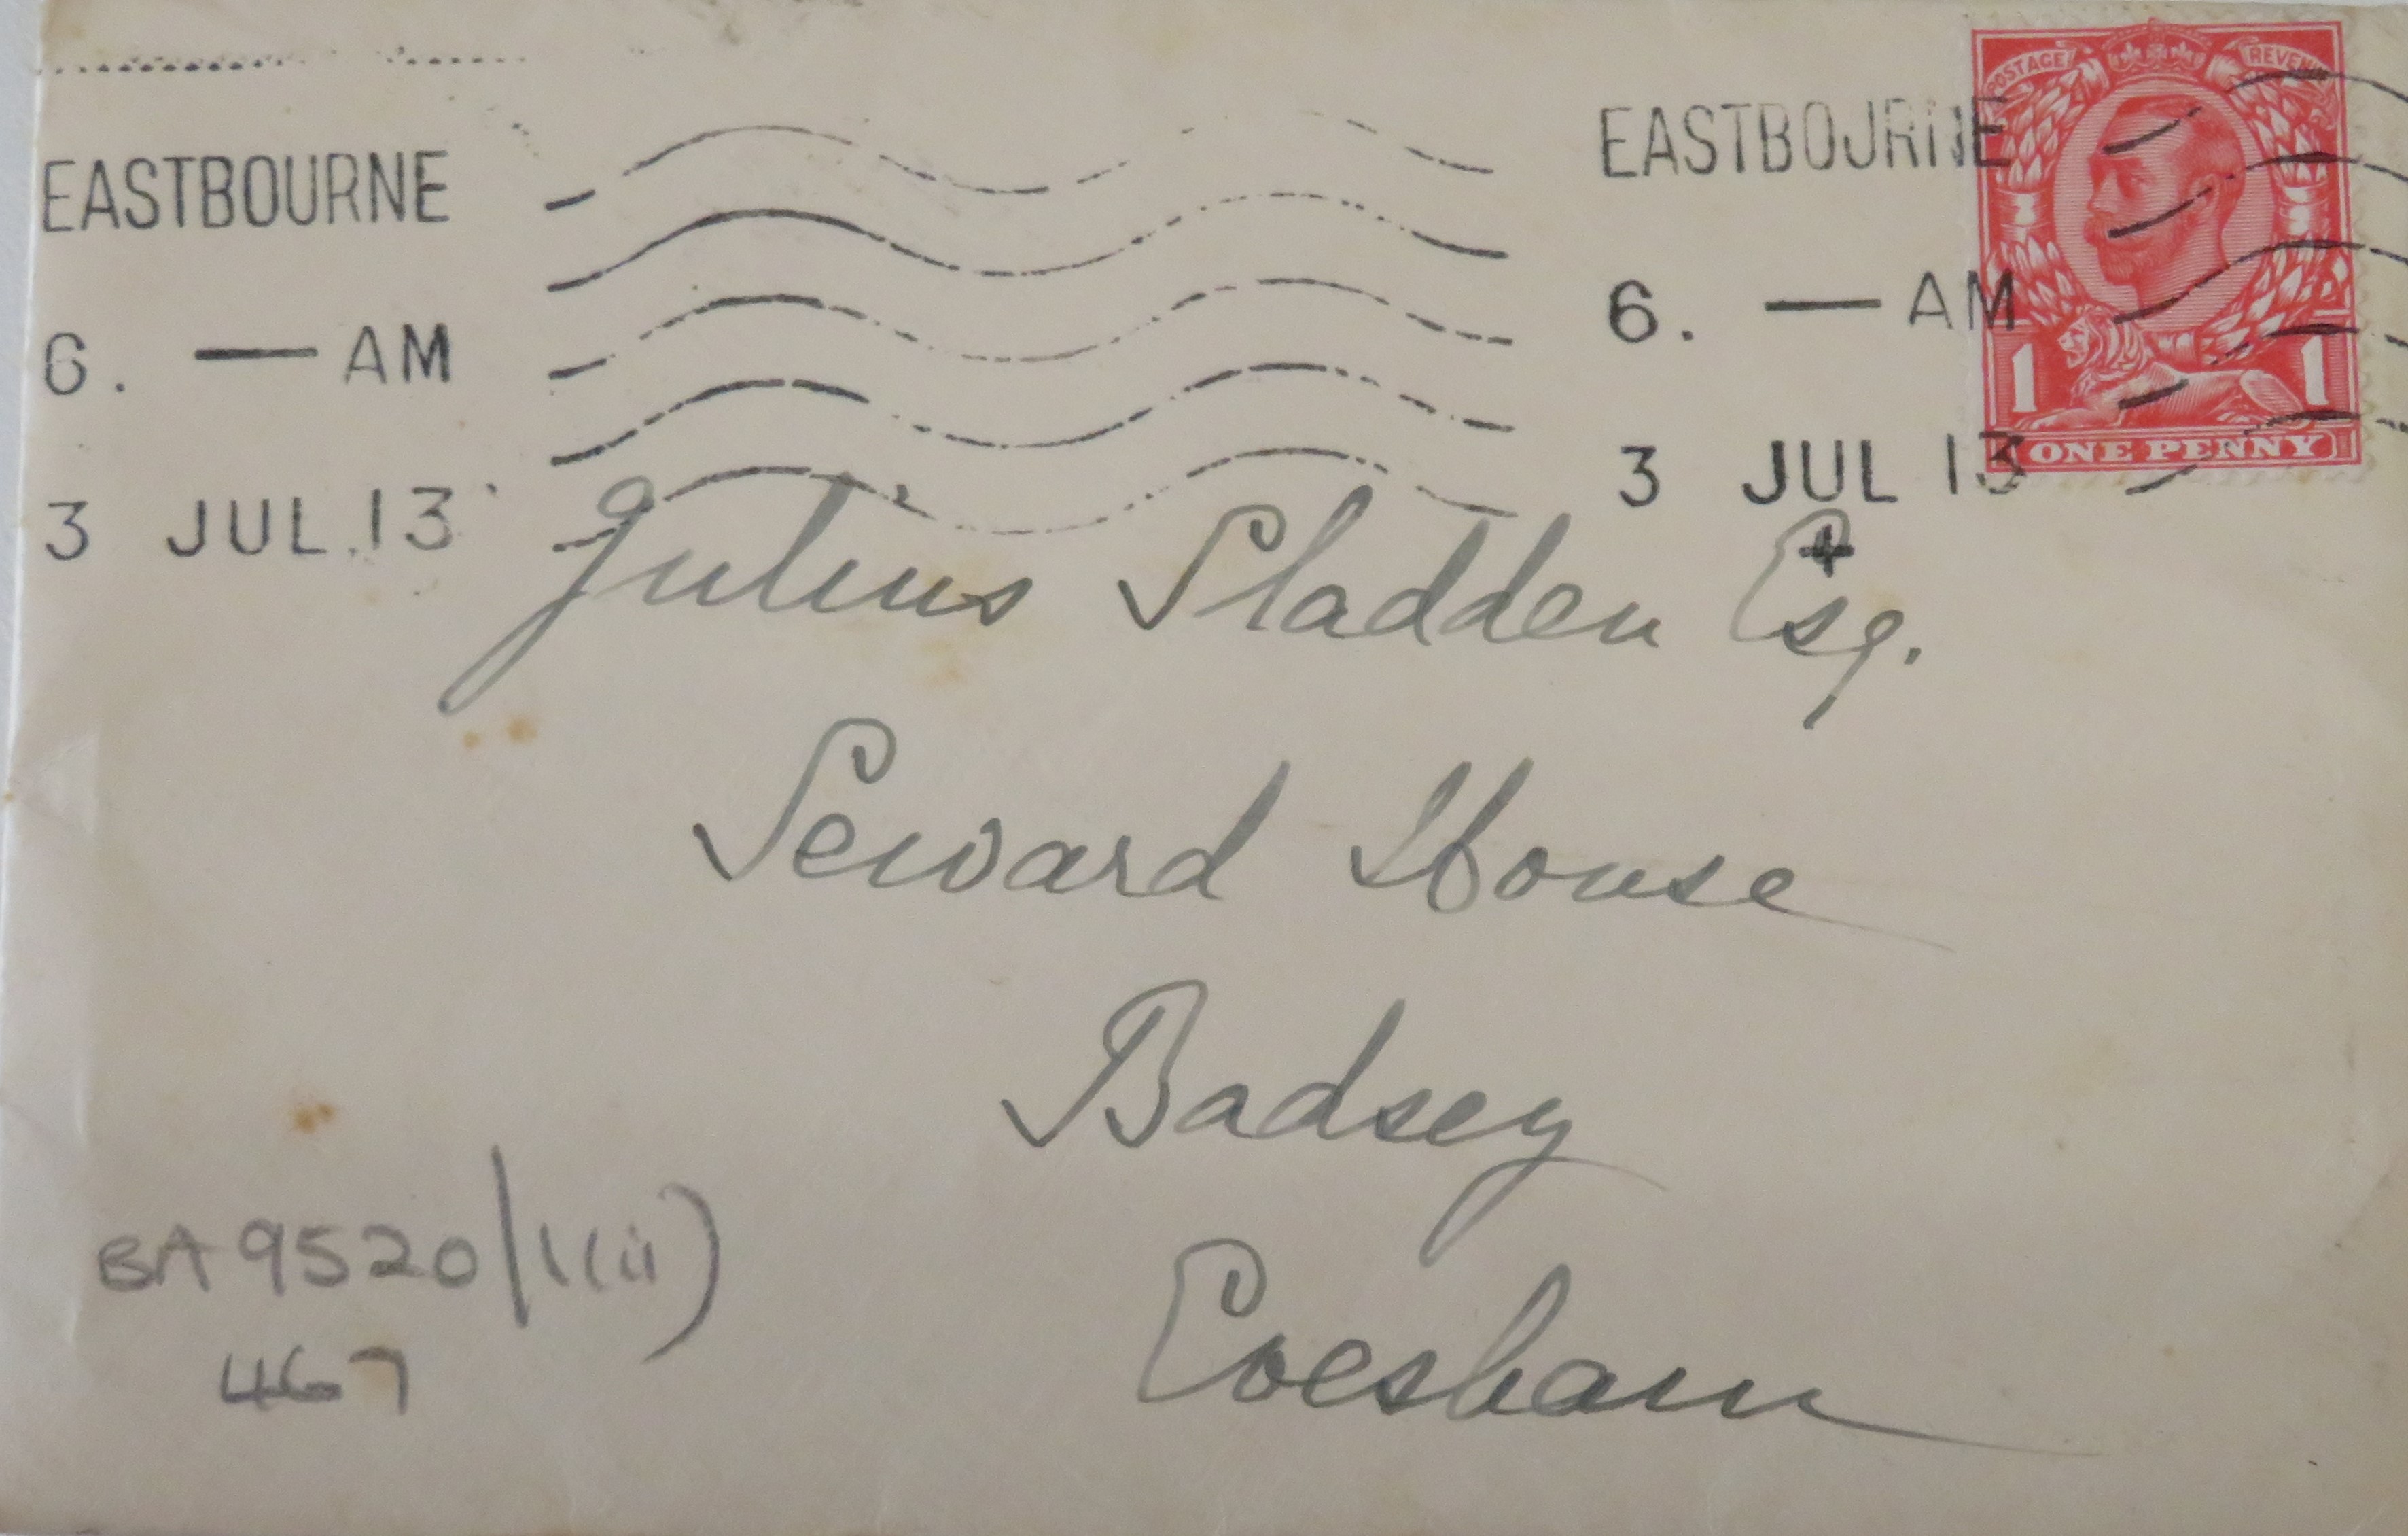 POSTAGE REVENUE
EASTBOURNE EASTBOURNE
6. — AM 6. — AM
1 1
3 JUL 13 3 JUL 13
ONE PENNY
Julius Sladden Esq.
Seward House
Badsey
Evesham
BA 9520/1(ii)
467